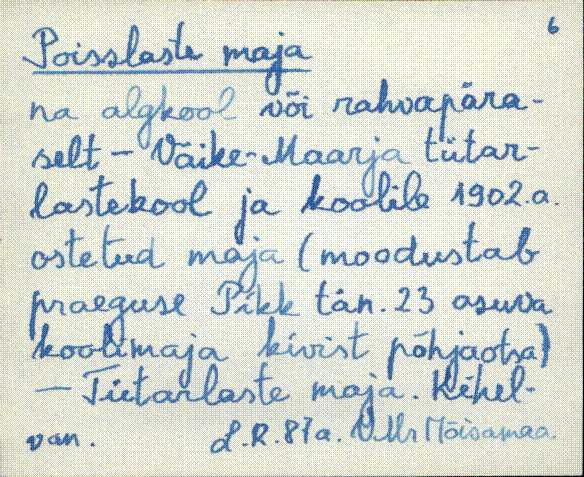 6
Poisslaste maja
na algkool või rahvapära-
selt - Väike-Maarja tütar-
lastekool ja koolile 1902.a.
ostetud maja (moodustab
praeguse Pikk tän. 23 asuva
koolimaja kivist põhjaotsa)
- Tütarlaste maja. Kihel-
van. L.R. 87a. Mõisamaa.